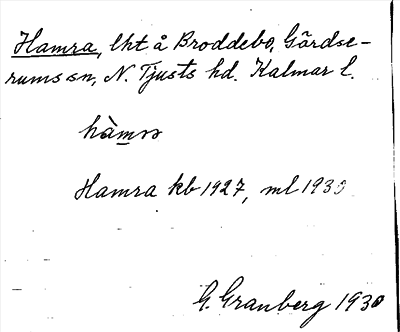 Hamra, lht å Broddebo, Gärdse-
rums sn, N. Tjusts hd. Kalmar l.
hàmra
Hamra kb 1927, ml 1930
G. Granberg 1930